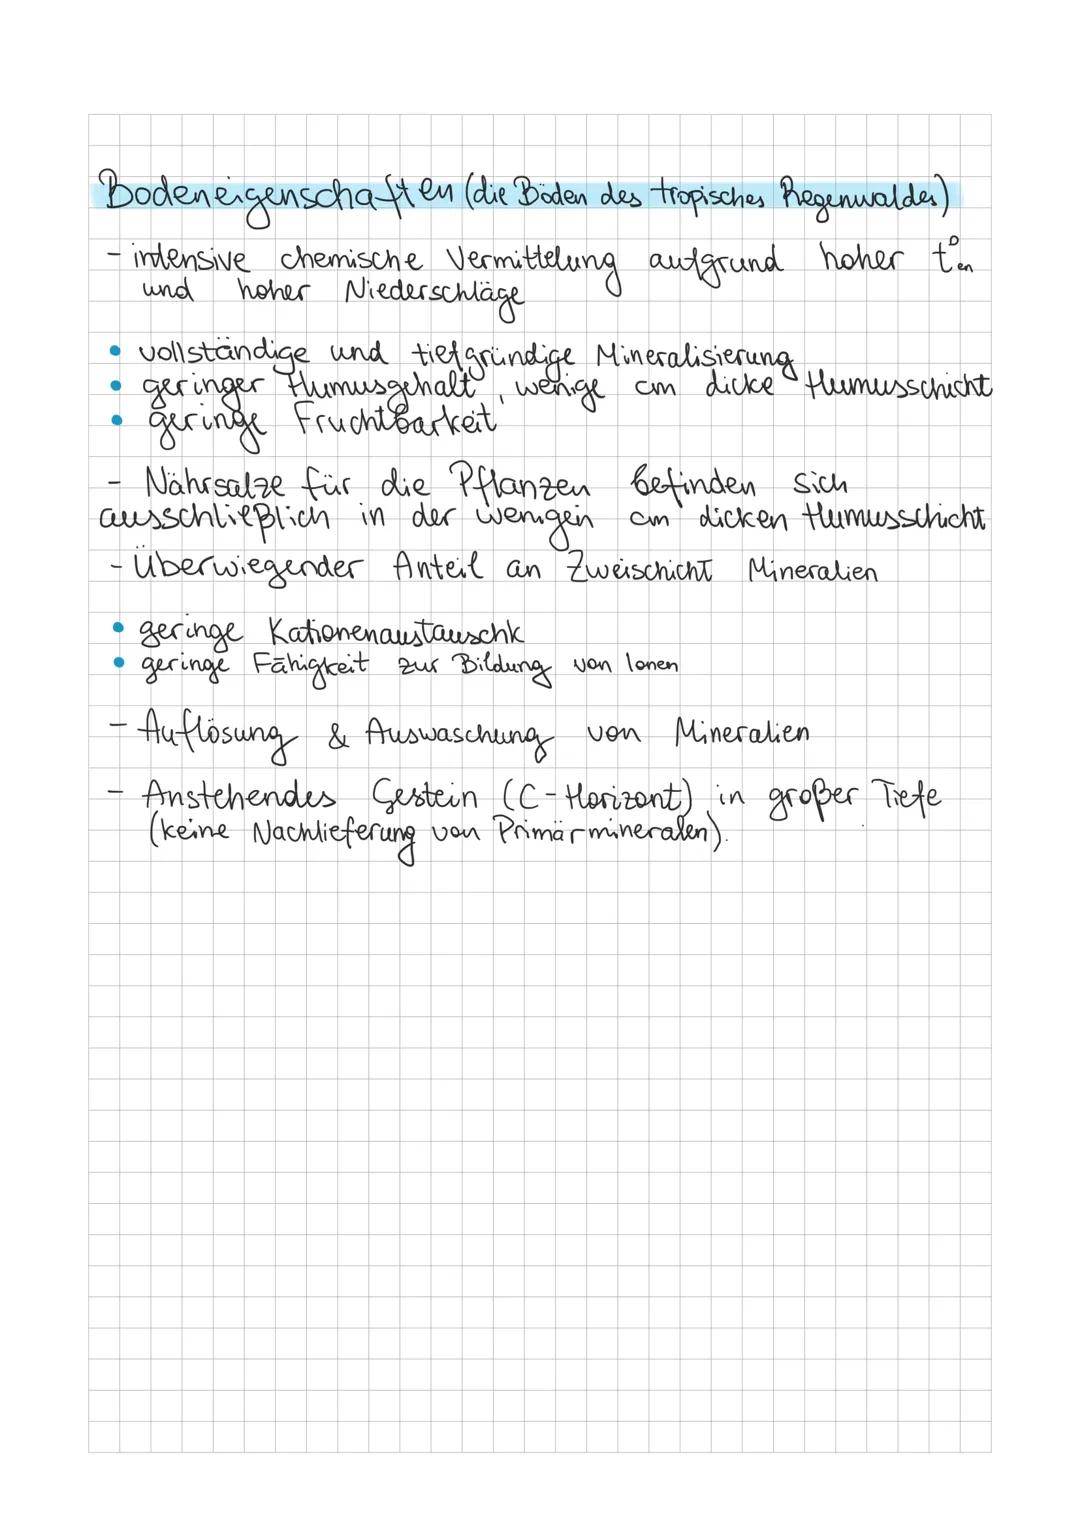 Bodeneigenschaften (die Böden des tropisches Regenwaldes)
- intensive chemische Vermittelung aufgrund hoher t°en
und hoher Niederschläge
• vollständige und tiefgründige Mineralisierung
• geringer Humusgehalt, wenige cm dicke Humusschicht
• geringe Fruchtbarkeit
- Nährsalze für die Pflanzen befinden sich
ausschließlich in der wenigen cm dicken Humusschicht
- Überwiegender Anteil an Zweischicht Mineralien
• geringe Kationenaustauschk
• geringe Fähigkeit zur Bildung von Ionen
- Auflösung & Auswaschung von Mineralien
- Anstehendes Gestein (C-Horizont) in großer Tiefe
(keine Nachlieferung von Primärmineralen).